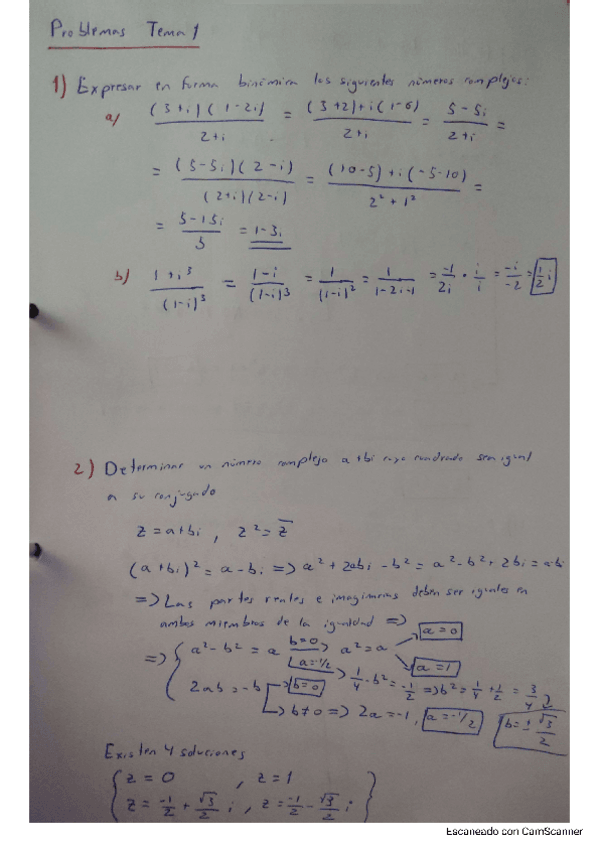 Problemas Tema 1
1) Expresar en forma binómica los siguientes números complejos:
a) (3+i)(1-2i) / 2+i = (3+2)+i(1-6) / 2+i = 5-5i / 2+i =
= (5-5i)(2-i) / (2+i)(2-i) = (10-5)+i(-5-10) / 2²+1² =
= 5-15i / 5 = 1-3i
b) 1+i³ / (1-i)³ = 1-i / (1-i)³ = 1 / (1-i)² = 1 / 1-2i-1 = -1/2i · i/i = -i/-2 = 1/2 i
2) Determinar un número complejo a+bi cuyo cuadrado sea igual
a su conjugado
z=a+bi, z²=z̄
(a+bi)²=a-bi => a²+2abi-b²=a²-b²+2bi=a-bi
=> Las partes reales e imaginarias deben ser iguales en
ambos miembros de la igualdad =>
a=0
=> { a²-b²=a b=0 => a²=a
a=-1/2 a=1
=> 1/4-b²=-1/2 => b²=1/4+1/2=3/4
2ab=-b b=0
b≠0 => 2a=-1, a=-1/2 b=±√3/2
Existen 4 soluciones
{ z=0 , z=1 }
{ z=-1/2+√3/2 i , z=-1/2-√3/2 i }
Escaneado con CamScanner